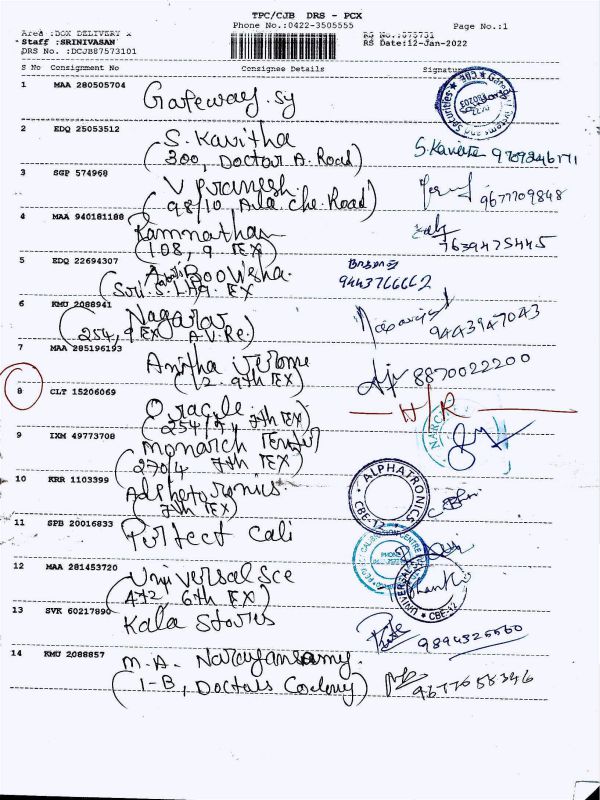 TPC/CJB DRS - PCX
Phone No.:0422-3505555
Page No.:1
Area :DOX DELIVERY x
Staff :SRINIVASAN
DRS No. :DCJB87573101
RS No.:575731
RS Date:12-Jan-2022
S No Consignment No Consignee Details Signature
1 MAA 280505704 Gateway. sy
2 EDQ 25053512 S. Kavitha S.Kavitha 9789346171
(300, Doctor A. Road)
3 SGP 574968 V Pranesh.
(98/10 Ala. che. Road) 9677709848
4 MAA 940181188 Ramnathan
(108, 9 EX) 7639475445
5 EDQ 22694307 A. Boowisha.
(Sri. S. Lig. EX 9443766662
6 KMU 2088941 Nagaraj
(254, 9 EX A.V.Re.) 9443947043
7 MAA 285196193 Anitha Jerome
(12. 9th EX) 8870022200
8 CLT 15206069 Oracle N/R
(254/9, 7th EX)
9 IXM 49773708 Monarch
(270/4 7th EX)
10 KRR 1103399 Alphotoronics.
(7th EX)
ALPHATRONICS
CBE-12
11 SPB 20016833 Perfect Cali
PHONE
12 MAA 281453720 Universal Sce
(472, 6th EX)
UNIVERSAL
CBE-42
13 SVK 60217890 Kala Stores
9894325560
14 KMU 2088857 M.A. Narayansamy.
(1-B, Doctors Colony) 9677658346